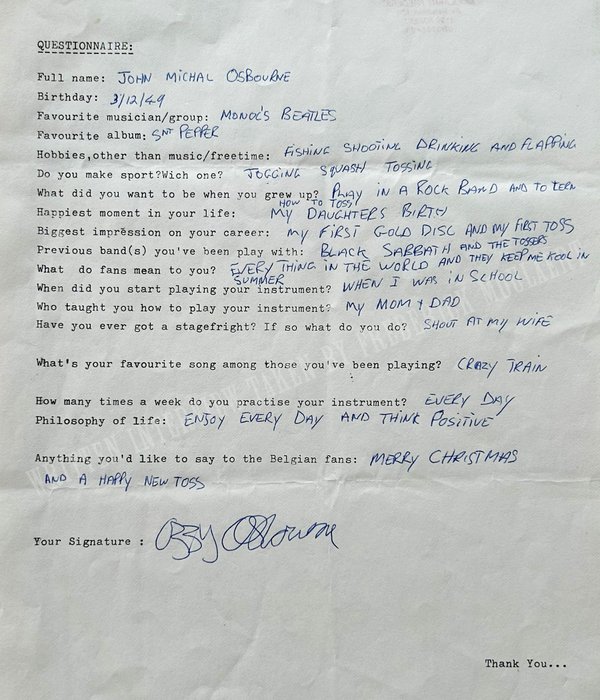 QUESTIONNAIRE:
Full name: JOHN MICHAL OSBOURNE
Birthday: 3/12/49
Favourite musician/group: MONOC'S BEATLES
Favourite album: SNT PEPPER
Hobbies,other than music/freetime: FISHING SHOOTING DRINKING AND FLAPPING
Do you make sport?Wich one? JOGGING SQUASH TOSSING
What did you want to be when you grew up? PLAY IN A ROCK BAND AND TO LERN
HOW TO TOSS
Happiest moment in your life: MY DAUGHTERS BIRTH
Biggest impression on your career: MY FIRST GOLD DISC AND MY FIRST TOSS
Previous band(s) you've been play with: BLACK SABBATH AND THE TOSSERS
What do fans mean to you? EVERY THING IN THE WORLD AND THEY KEEP ME KOOL IN
SUMMER
When did you start playing your instrument? WHEN I WAS IN SCHOOL
Who taught you how to play your instrument? MY MOM & DAD
Have you ever got a stagefright? If so what do you do? SHOUT AT MY WIFE
What's your favourite song among those you've been playing? CRAZY TRAIN
How many times a week do you practise your instrument? EVERY DAY
Philosophy of life: ENJOY EVERY DAY AND THINK POSITIVE
Anything you'd like to say to the Belgian fans: MERRY CHRISTMAS
AND A HAPPY NEW TOSS
Your Signature : Ozzy Osbourne
Thank You...